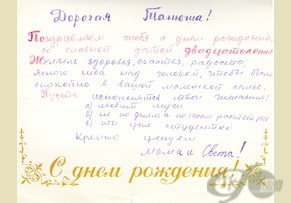 Дорогая Танюша!
Поздравляем тебя с днем рождения,
со славной датой двадцатилетия
Желаем здоровья, счастья, радости,
ясного неба над головой, чтобы было
спокойно в вашей маленькой семье.
Пусть исполнятся твои желания:
а) любит муж
б)
в)
Крепко целуем
мама и Света!
С днем рождения!